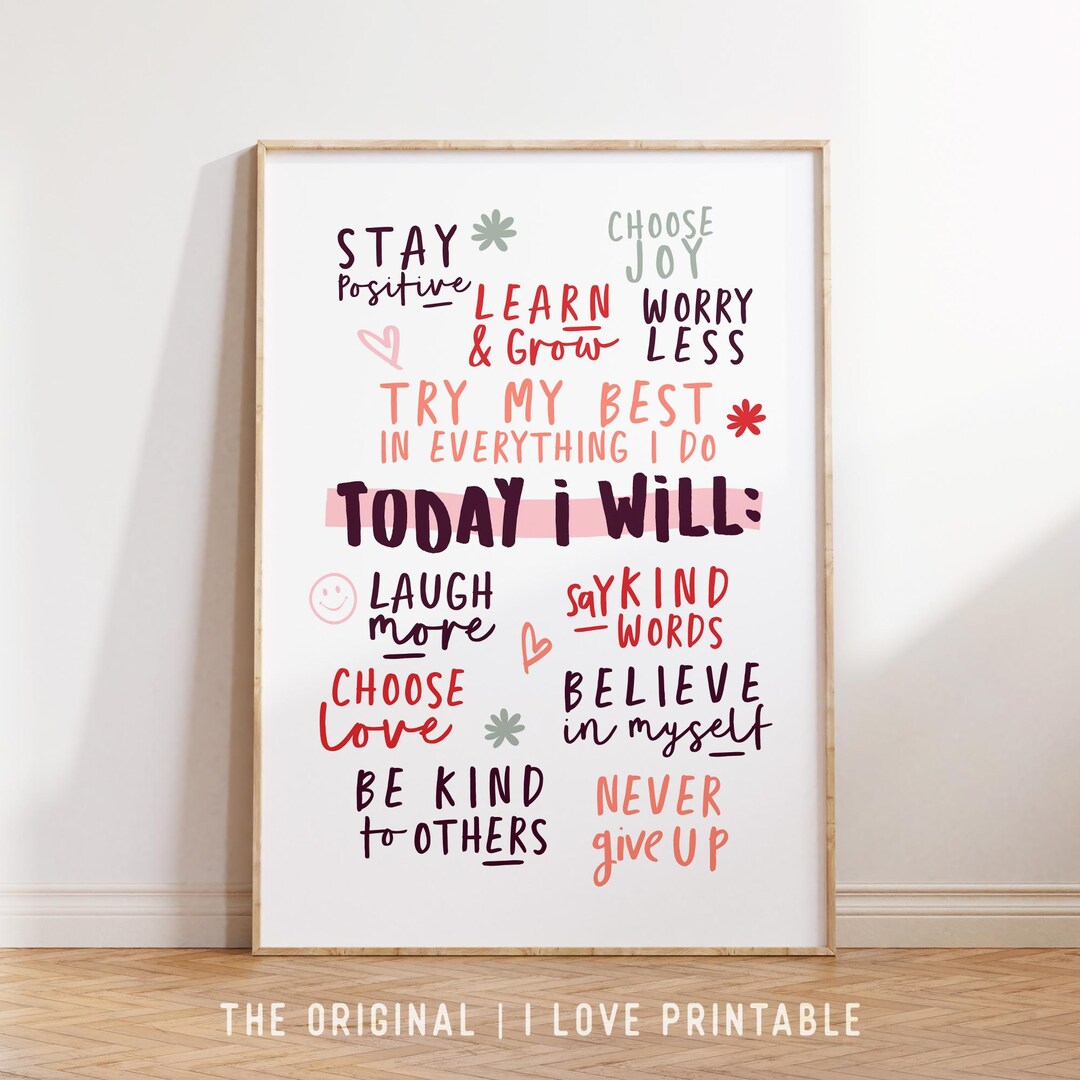 STAY
Positive
CHOOSE
JOY
LEARN
& Grow
WORRY
LESS
TRY MY BEST
IN EVERYTHING I DO
TODAY i WiLL:
LAUGH
more
saY KIND
WORDS
CHOOSE
love
BELIEVE
in myself
BE KIND
to OTHERS
NEVER
give UP
THE ORIGINAL | I LOVE PRINTABLE